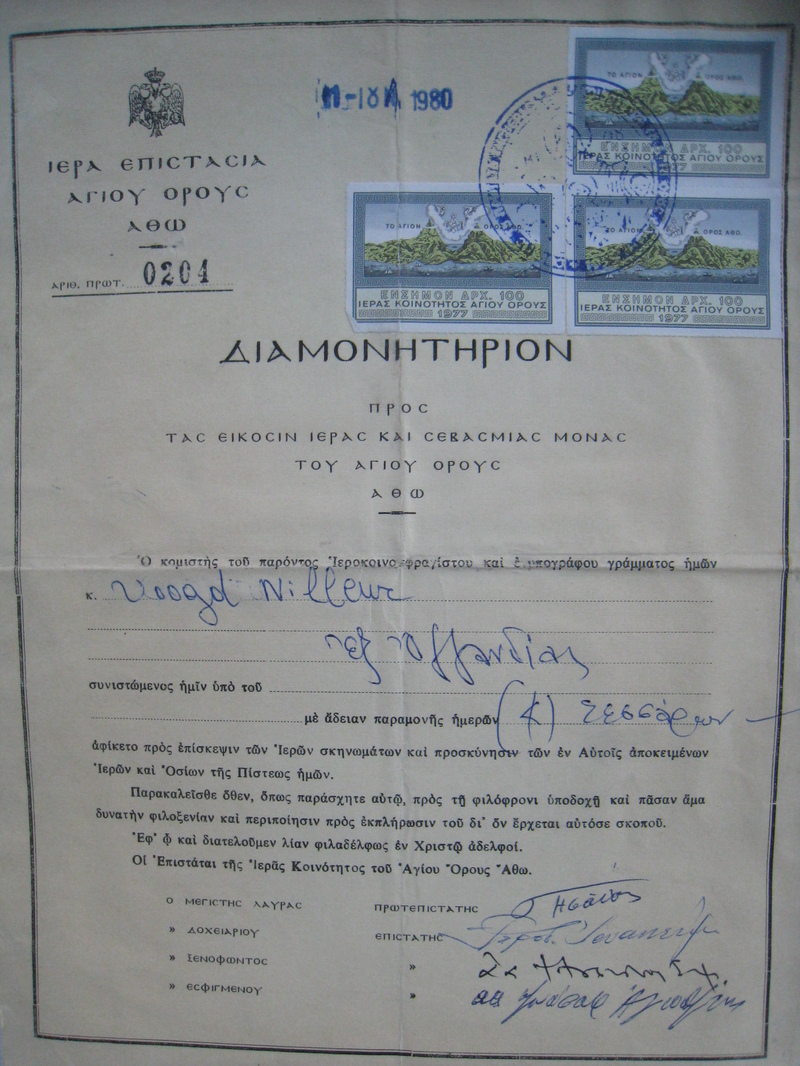 ΙΕΡΑ ΕΠΙCΤΑCΙΑ
ΑΓΙΟΥ ΟΡΟΥC
ΑΘΩ
ΑΡΙΘ. ΠΡΩΤ. 0204
1980
ΤΟ ΑΓΙΟΝ ΟΡΟΣ ΑΘΩ.
ΕΝΣΗΜΟΝ ΔΡΧ. 100
ΙΕΡΑΣ ΚΟΙΝΟΤΗΤΟΣ ΑΓΙΟΥ ΟΡΟΥΣ
1977
ΤΟ ΑΓΙΟΝ ΟΡΟΣ ΑΘΩ.
ΕΝΣΗΜΟΝ ΔΡΧ. 100
ΙΕΡΑΣ ΚΟΙΝΟΤΗΤΟΣ ΑΓΙΟΥ ΟΡΟΥΣ
1977
ΤΟ ΑΓΙΟΝ ΟΡΟΣ ΑΘΩ.
ΕΝΣΗΜΟΝ ΔΡΧ. 100
ΙΕΡΑΣ ΚΟΙΝΟΤΗΤΟΣ ΑΓΙΟΥ ΟΡΟΥΣ
1977
ΔΙΑΜΟΝΗΤΗΡΙΟΝ
ΠΡΟC
ΤΑC ΕΙΚΟCΙΝ ΙΕΡΑC ΚΑΙ CΕΒΑCΜΙΑC ΜΟΝΑC
ΤΟΥ ΑΓΙΟΥ ΟΡΟΥC
ΑΘΩ
Ὁ κομιστὴς τοῦ παρόντος Ἱεροκοινοσφραγίστου καὶ ἐνυπογράφου γράμματος ἡμῶν
κ. Voogd Willem
ἐξ Ὁλλανδίας
συνιστώμενος ἡμῖν ὑπὸ τοῦ
μὲ ἄδειαν παραμονῆς ἡμερῶν (4) τεσσάρων
ἀφίκετο πρὸς ἐπίσκεψιν τῶν Ἱερῶν σκηνωμάτων καὶ προσκύνησιν τῶν ἐν Αὐτοῖς ἀποκειμένων
Ἱερῶν καὶ Ὁσίων τῆς Πίστεως ἡμῶν.
Παρακαλεῖσθε ὅθεν, ὅπως παράσχητε αὐτῷ, πρὸς τῇ φιλόφρονι ὑποδοχῇ καὶ πᾶσαν ἅμα
δυνατὴν φιλοξενίαν καὶ περιποίησιν πρὸς ἐκπλήρωσιν τοῦ δι' ὃν ἔρχεται αὐτόσε σκοποῦ.
Ἐφ' ᾧ καὶ διατελοῦμεν λίαν φιλαδέλφως ἐν Χριστῷ ἀδελφοί.
Οἱ Ἐπιστάται τῆς Ἱερᾶς Κοινότητος τοῦ Ἁγίου Ὄρους Ἄθω.
Ο ΜΕΓΙCΤΗC ΛΑΥΡΑC ΠΡΩΤΕΠΙCΤΑΤΗC
» ΔΟΧΕΙΑΡΙΟΥ ΕΠΙCΤΑΤΗC
» ΞΕΝΟΦΩΝΤΟC »
» ΕCΦΙΓΜΕΝΟΥ »